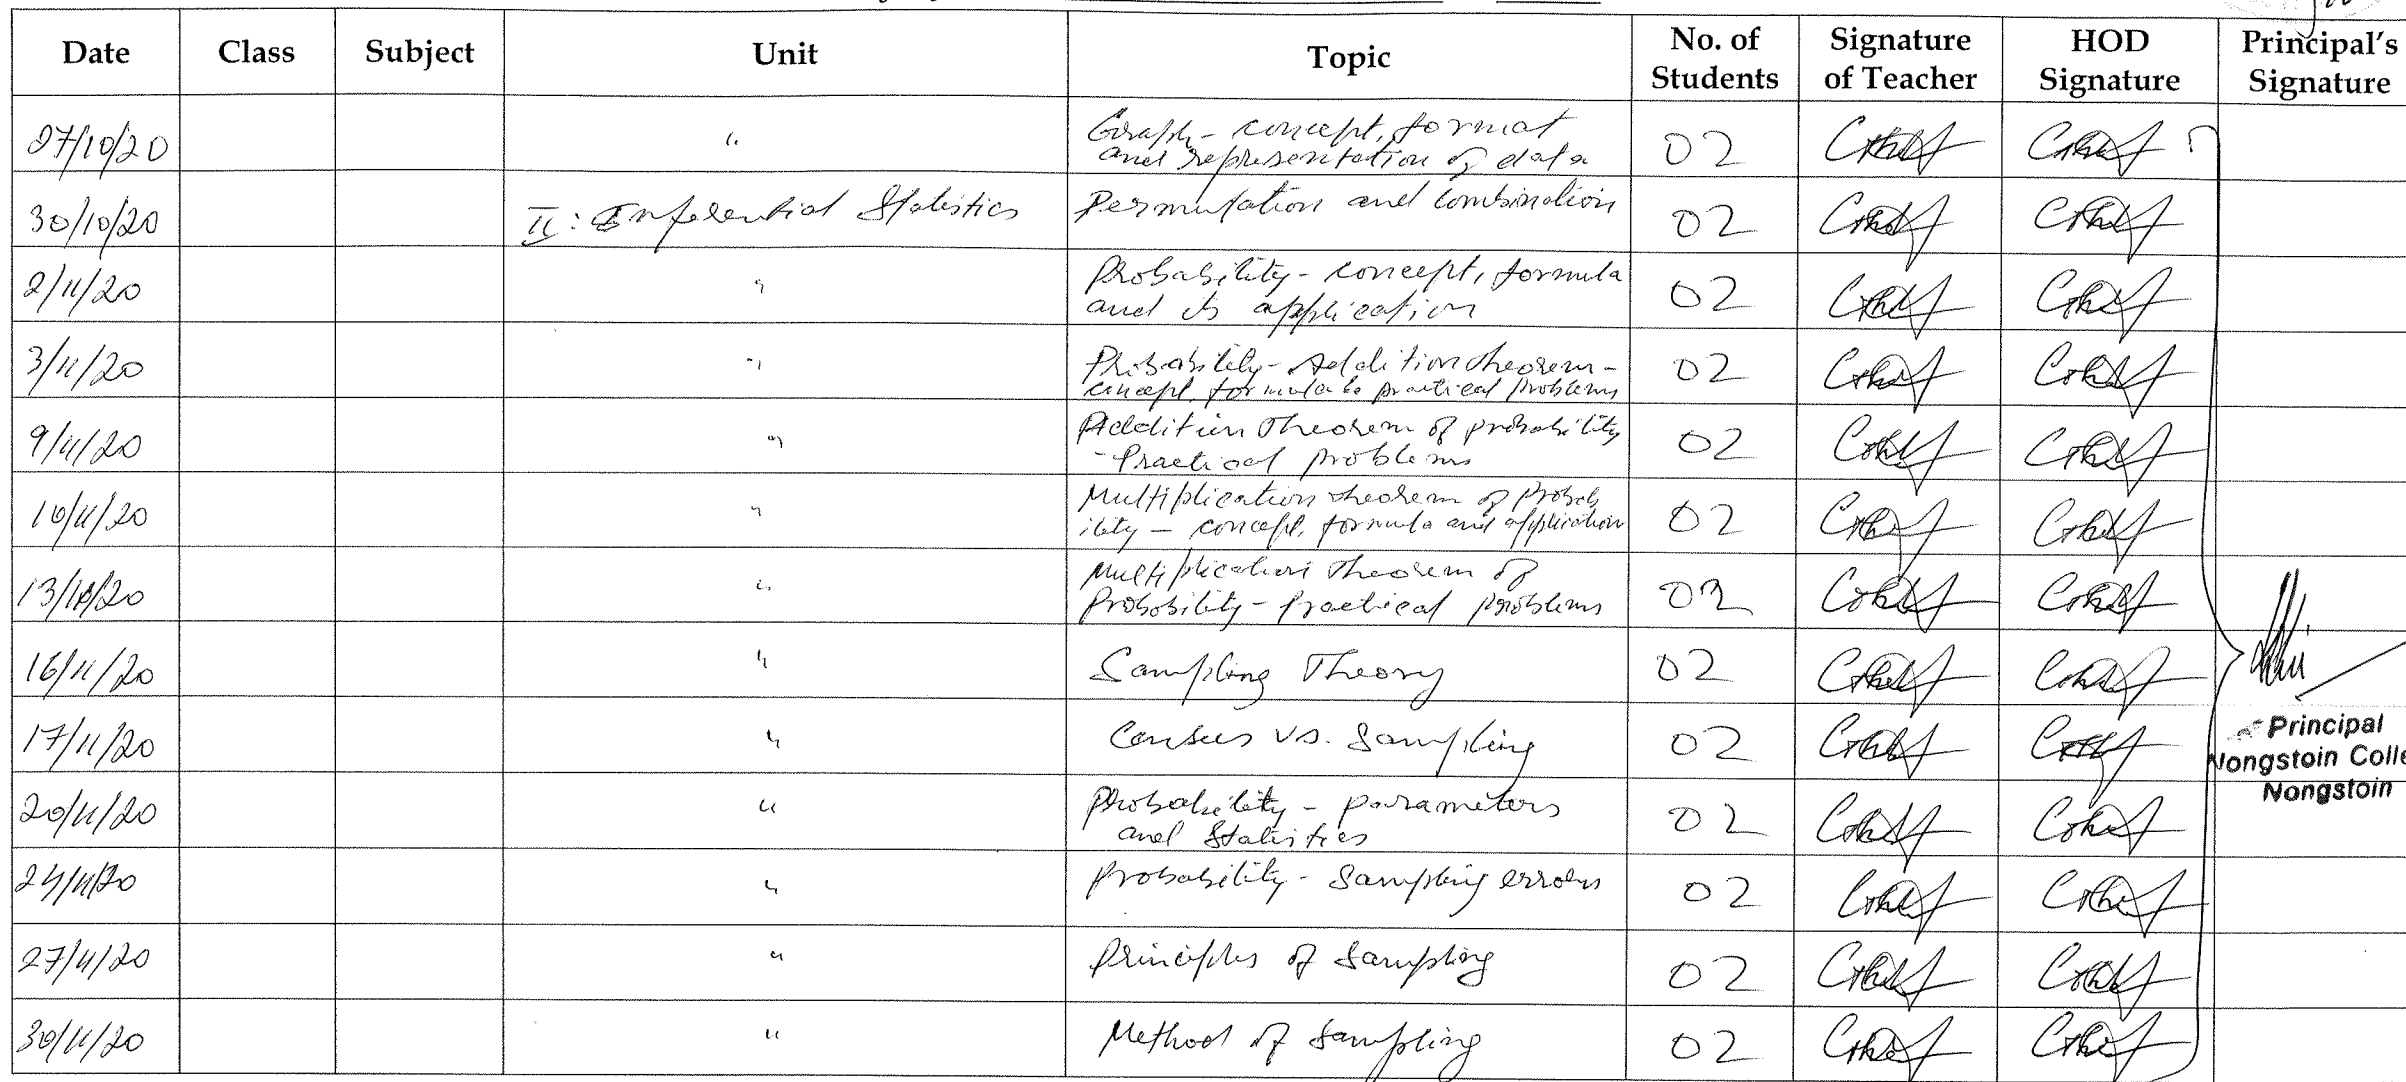 Date Class Subject Unit Topic No. of Students Signature of Teacher HOD Signature Principal's Signature
27/10/20 " Graph - concept, format and representation of data 02
30/10/20 II: Inferential Statistics Permutation and Combination 02
2/11/20 " Probability - concept, formula and its application 02
3/11/20 " Probability - Addition theorem - concept, formula & practical problems 02
9/11/20 " Addition Theorem of probability - Practical problems 02
10/11/20 " Multiplication theorem of Probab ility - concept, formula and application 02
13/11/20 " Multiplication Theorem of Probability - Practical problems 02
16/11/20 " Sampling Theory 02
17/11/20 " Census vs. Sampling 02
Principal
Nongstoin Colle
Nongstoin
20/11/20 " Probability - parameters and Statistics 02
24/11/20 " Probability - Sampling errors 02
27/11/20 " Principles of Sampling 02
30/11/20 " Method of Sampling 02